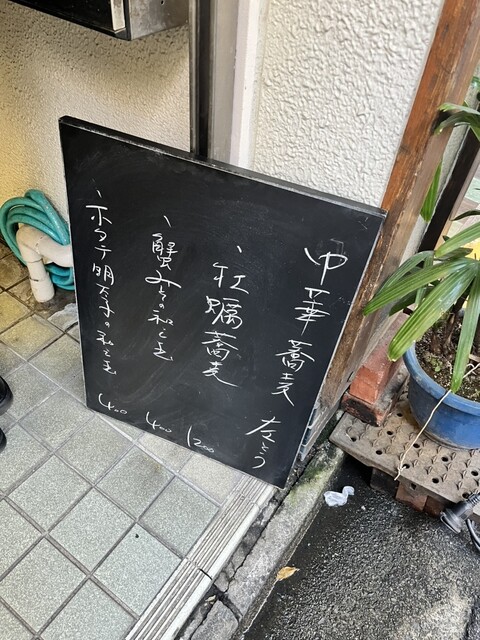 中華蕎麦
、牡蠣蕎麦 1200
、蟹みその和え玉 400
、ホタテ明太子の和え玉 400